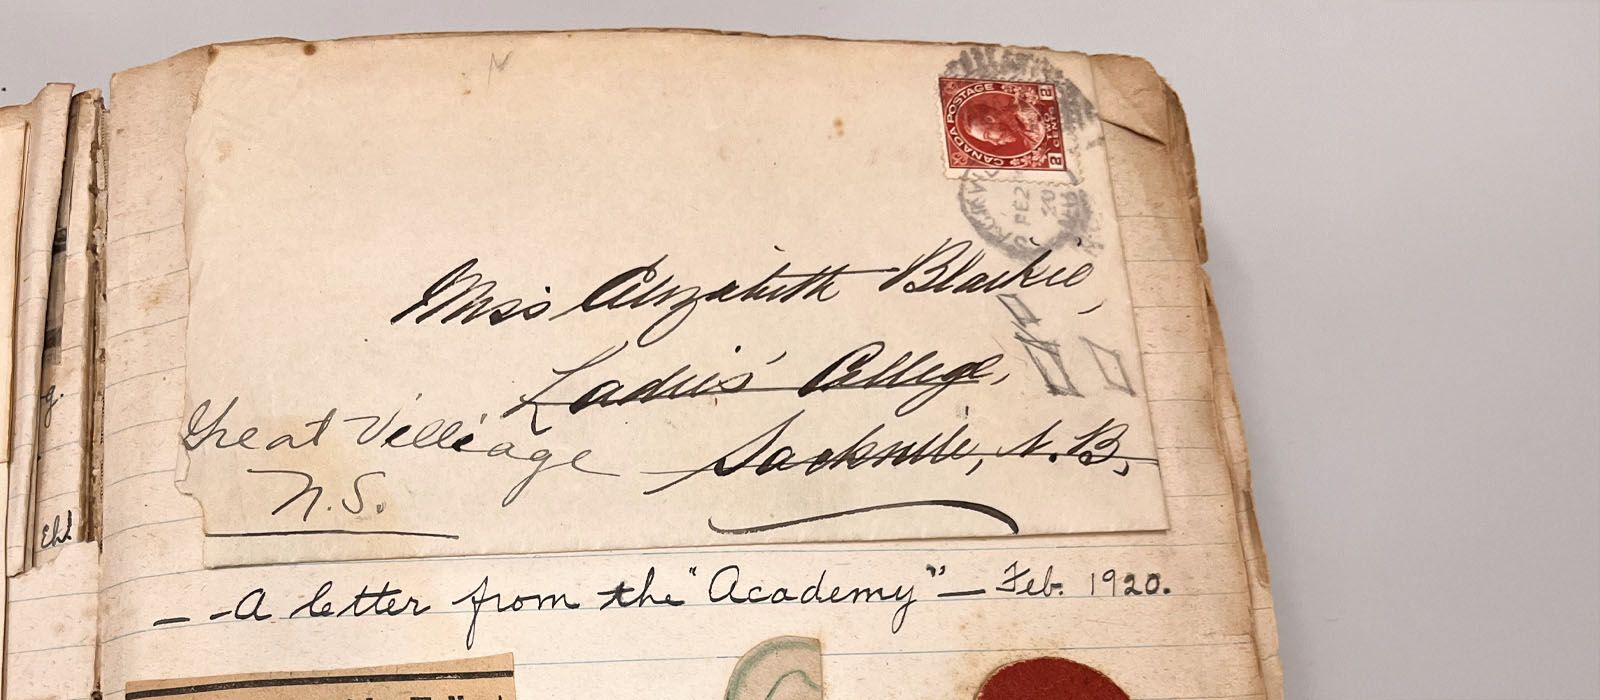 CANADA POSTAGE
2 TWO CENTS 2
FE 2
20
Miss Elizabeth Blackie,
Ladies' College,
Sackville, N.B.,
Great Villiage
N.S.
g.
Eh!
- A letter from the "Academy" - Feb. 1920.